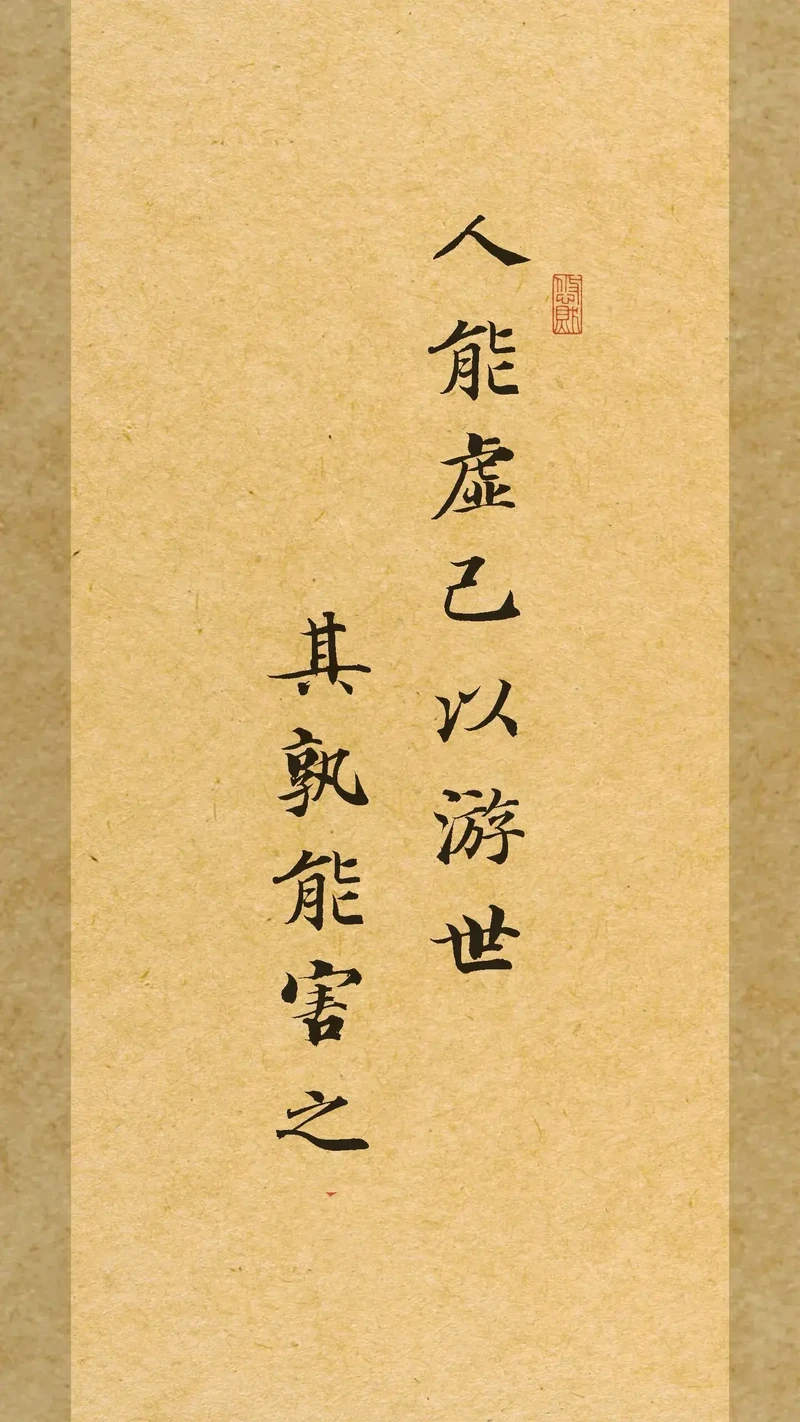 人能虚己以游世
其孰能害之